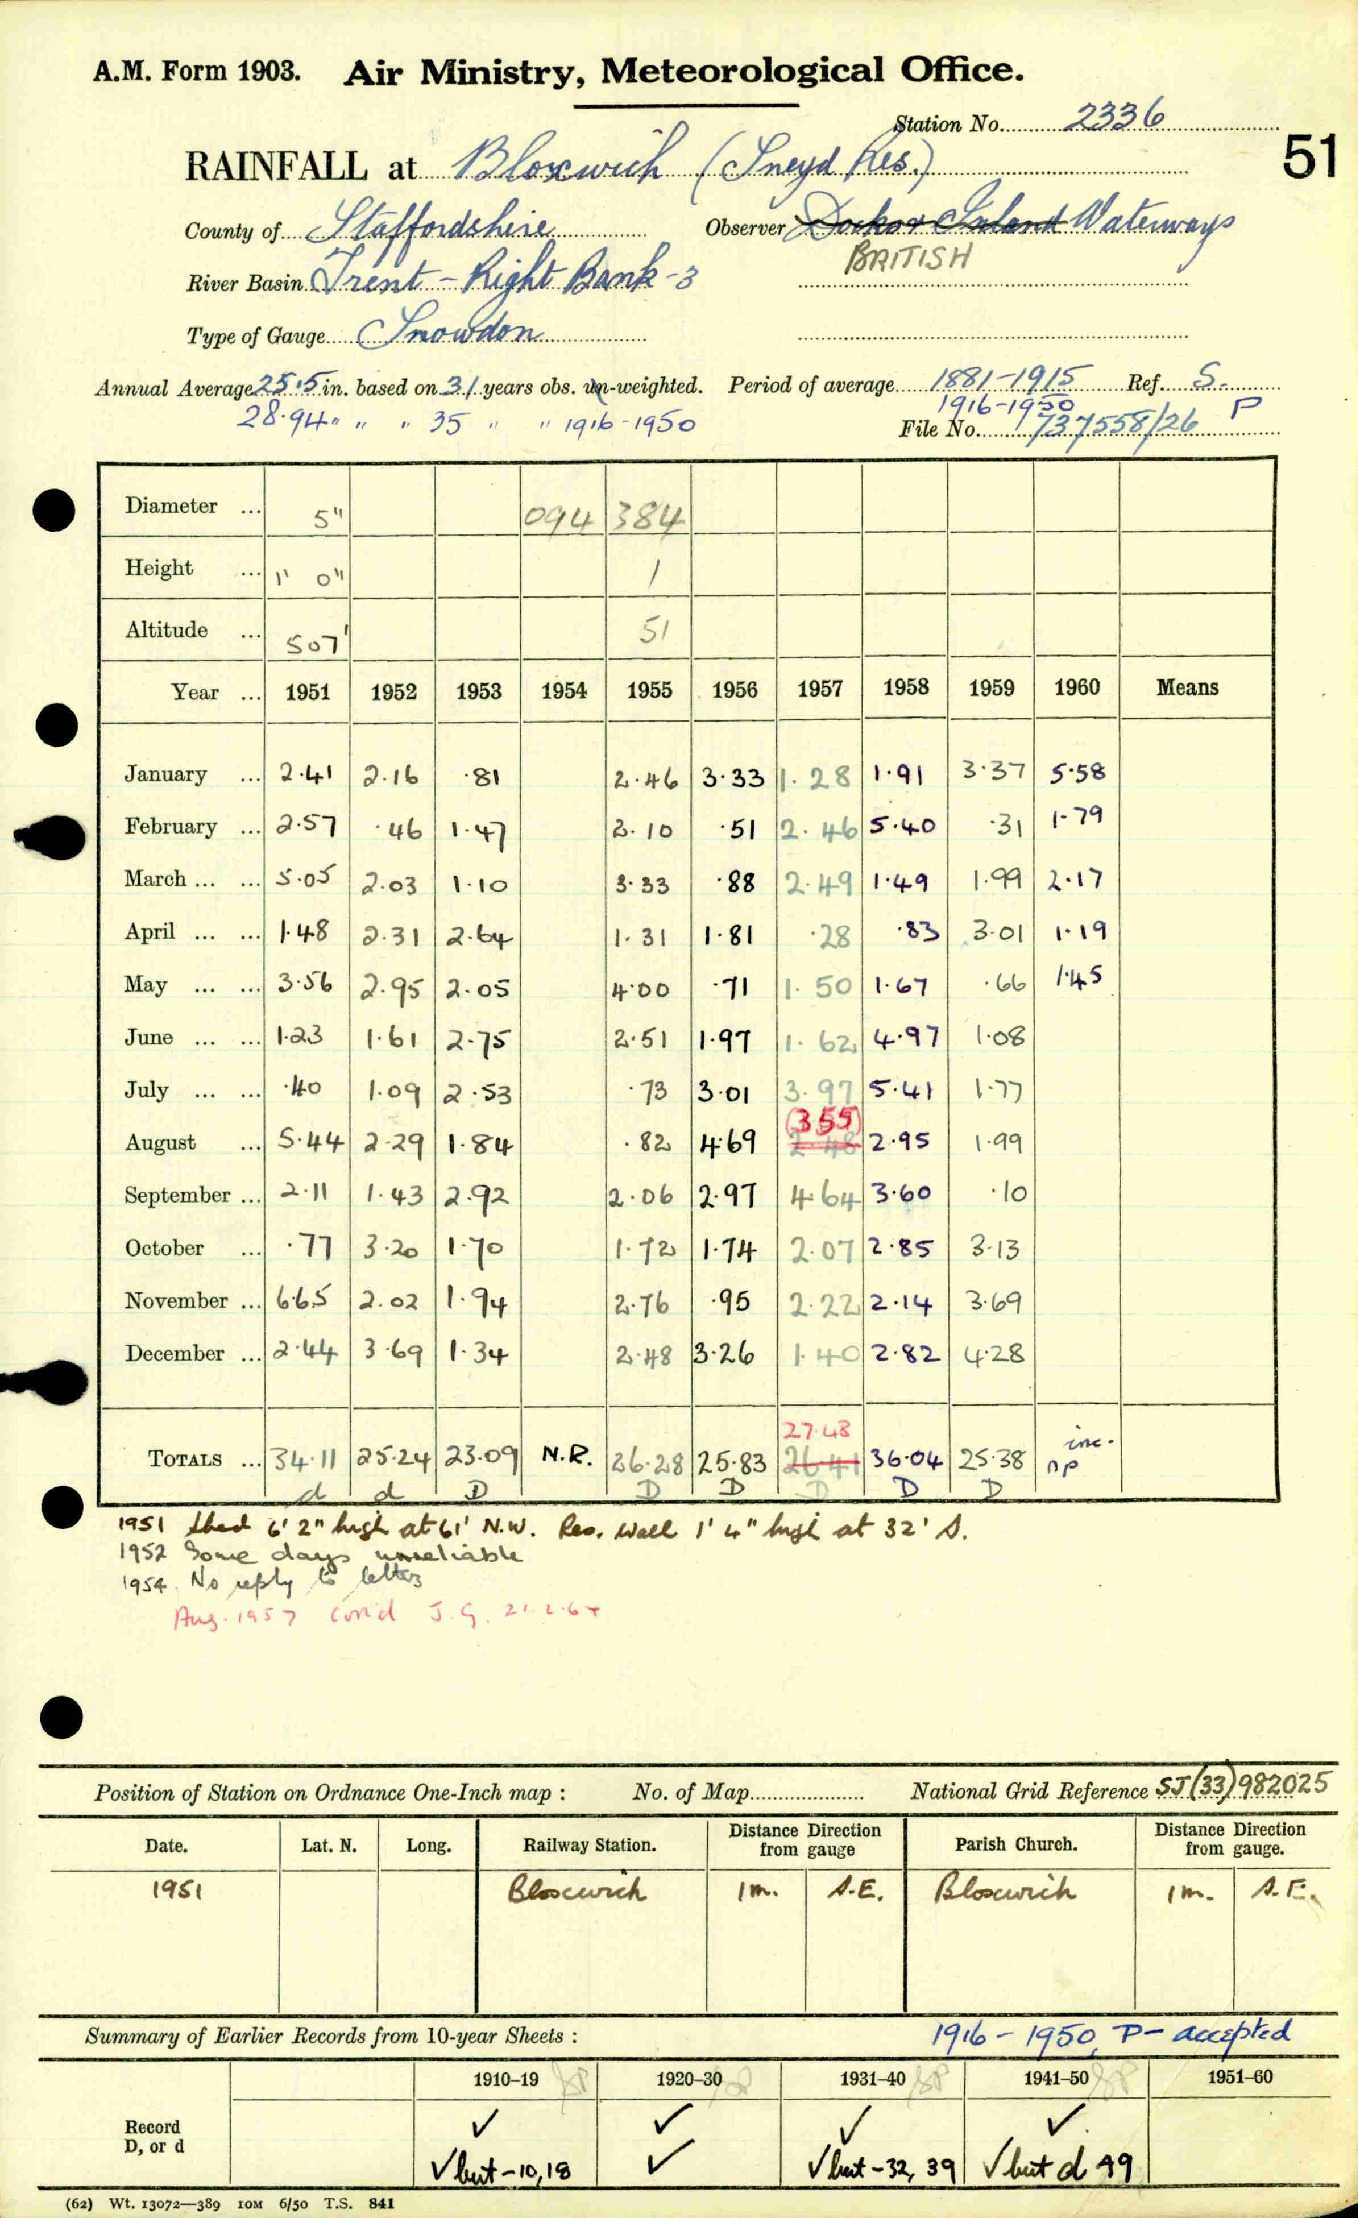 A.M. Form 1903. Air Ministry, Meteorological Office.
Station No. 2336
51
RAINFALL at Bloxwich (Sneyd Res.)
County of Staffordshire Observer Docks & Inland Waterways
BRITISH
River Basin Trent - Right Bank - 3
Type of Gauge Snowdon
Annual Average 25.5 in. based on 31 years obs. un-weighted. Period of average 1881-1915 Ref. S.
28.94 " " " 35 " " 1916-1950 1916-1950 P
File No. 737558/26
Diameter ... 5" 094 384
Height ... 1' 0" 1
Altitude ... 507' 51
Year ... 1951 1952 1953 1954 1955 1956 1957 1958 1959 1960 Means
January ... 2.41 2.16 .81 2.46 3.33 1.28 1.91 3.37 5.58
February ... 2.57 .46 1.47 2.10 .51 2.46 5.40 .31 1.79
March ... ... 5.05 2.03 1.10 3.33 .88 2.49 1.49 1.99 2.17
April ... ... 1.48 2.31 2.64 1.31 1.81 .28 .83 3.01 1.19
May ... ... 3.56 2.95 2.05 4.00 .71 1.50 1.67 .66 1.45
June ... ... 1.23 1.61 2.75 2.51 1.97 1.62 4.97 1.08
July ... ... .40 1.09 2.53 .73 3.01 3.97 5.41 1.77
(3.55)
August ... 5.44 2.29 1.84 .82 4.69 2.48 2.95 1.99
September ... 2.11 1.43 2.92 2.06 2.97 4.64 3.60 .10
October ... .77 3.20 1.70 1.72 1.74 2.07 2.85 3.13
November ... 6.65 2.02 1.94 2.76 .95 2.22 2.14 3.69
December ... 2.44 3.69 1.34 2.48 3.26 1.40 2.82 4.28
27.48
TOTALS ... 34.11 25.24 23.09 N.R. 26.28 25.83 26.41 36.04 25.38 inc. np
d d D D D D D D
1951 Shed 6' 2" high at 61' N.W. Res. Wall 1' 4" high at 32' S.
1952 Some days unreliable
1954 No reply to letters
Aug. 1957 corr'd J.G. 21.2.64
Position of Station on Ordnance One-Inch map : No. of Map National Grid Reference SJ(33)982025
Date. Lat. N. Long. Railway Station. Distance from gauge Direction Parish Church. Distance from gauge. Direction
1951 Bloxwich 1m. S.E. Bloxwich 1m. S.E.
Summary of Earlier Records from 10-year Sheets : 1916-1950, P- accepted
1910-19 1920-30 1931-40 1941-50 1951-60
Record ✓ ✓ ✓ ✓
D, or d ✓ but -10, 18 ✓ ✓ but -32, 39 ✓ but d 49
(62) Wt. 13072—389 10M 6/50 T.S. 841